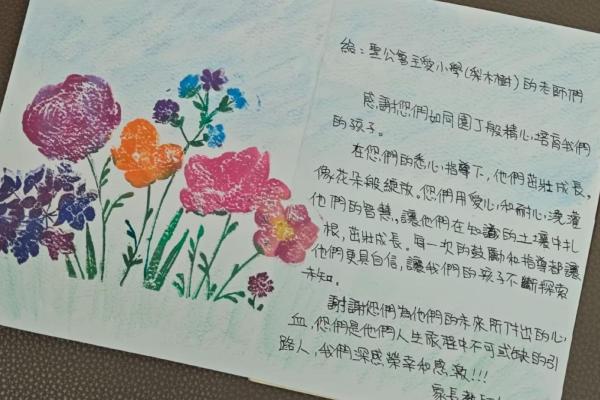 給：聖公會主愛小學(梨木樹)的老師們
感謝您們如同園丁般精心培育我們
的孩子。
在您們的悉心指導下,他們茁壯成長,
像花朵般綻放。您們用愛心和耐心澆灌
他們的智慧,讓他們在知識的土壤中扎
根,茁壯成長。每一次的鼓勵和指導都讓
他們更具自信,讓我們的孩子不斷探索
未知。
謝謝您們為他們的未來所付出的心
血,您們是他們人生旅程中不可或缺的引
路人,我們深感榮幸和感激!!!
家長教師